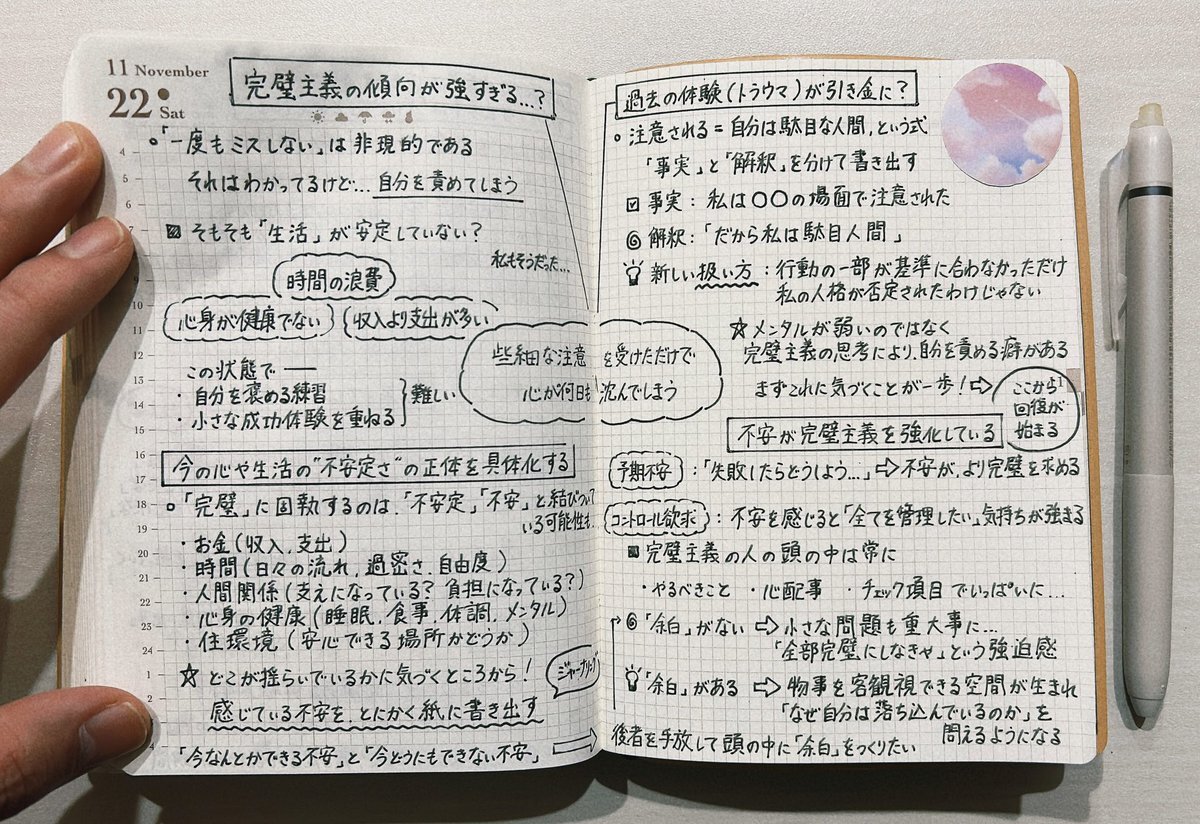 11 November
22 Sat
完璧主義の傾向が強すぎる…?
「一度もミスしない」は非現的である
それはわかってるけど… 自分を責めてしまう
そもそも「生活」が安定していない?
私もそうだった…
時間の浪費
心身が健康でない
収入より支出が多い
この状態で ―
・自分を褒める練習
・小さな成功体験を重ねる
難しい
今の心や生活の"不安定さ"の正体を具体化する
「完璧」に固執するのは、「不安定」「不安」と結びついて
いる可能性も…
・お金(収入、支出)
・時間(日々の流れ、過密さ、自由度)
・人間関係(支えになっている? 負担になっている?)
・心身の健康(睡眠、食事、体調、メンタル)
・住環境(安心できる場所かどうか)
☆ どこが揺らいでいるかに気づくところから!
ジャーナリング
感じている不安を、とにかく紙に書き出す
「今なんとかできる不安」と「今どうにもできない不安」 ⇒
4
5
6
7
10
11
12
13
14
15
16
17
18
19
20
21
22
23
24
1
2
些細な注意を受けただけで
心が何日も沈んでしまう
過去の体験(トラウマ)が引き金に?
注意される=自分は駄目な人間、という式
「事実」と「解釈」を分けて書き出す
☑ 事実:私は〇〇の場面で注意された
解釈:「だから私は駄目人間」
新しい扱い方:行動の一部が基準に合わなかっただけ
私の人格が否定されたわけじゃない
☆メンタルが弱いのではなく
完璧主義の思考により、自分を責める癖がある
まずこれに気づくことが一歩!⇒
ここから
回復が
始まる
不安が完璧主義を強化している
予期不安:「失敗したらどうしよう…」⇒不安が、より完璧を求める
コントロール欲求:不安を感じると「全てを管理したい」気持ちが強まる
完璧主義の人の頭の中は常に
・やるべきこと ・心配事 ・チェック項目でいっぱいに…
「余白」がない ⇒ 小さな問題も重大事に…
「全部完璧にしなきゃ」という強迫感
「余白」がある ⇒ 物事を客観視できる空間が生まれ
「なぜ自分は落ち込んでいるのか」を
問えるようになる
後者を手放して頭の中に「余白」をつくりたい